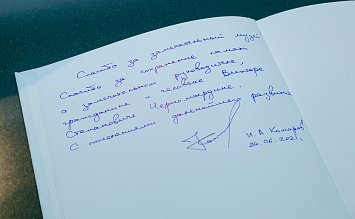 Спасибо за замечательный музей
Спасибо за сохранение памяти
о замечательном руководителе,
гражданине и человеке Викторе
Степановиче Черномырдине.
С пожеланием дальнейшего развития
И.А. Комаров
24.06.2021